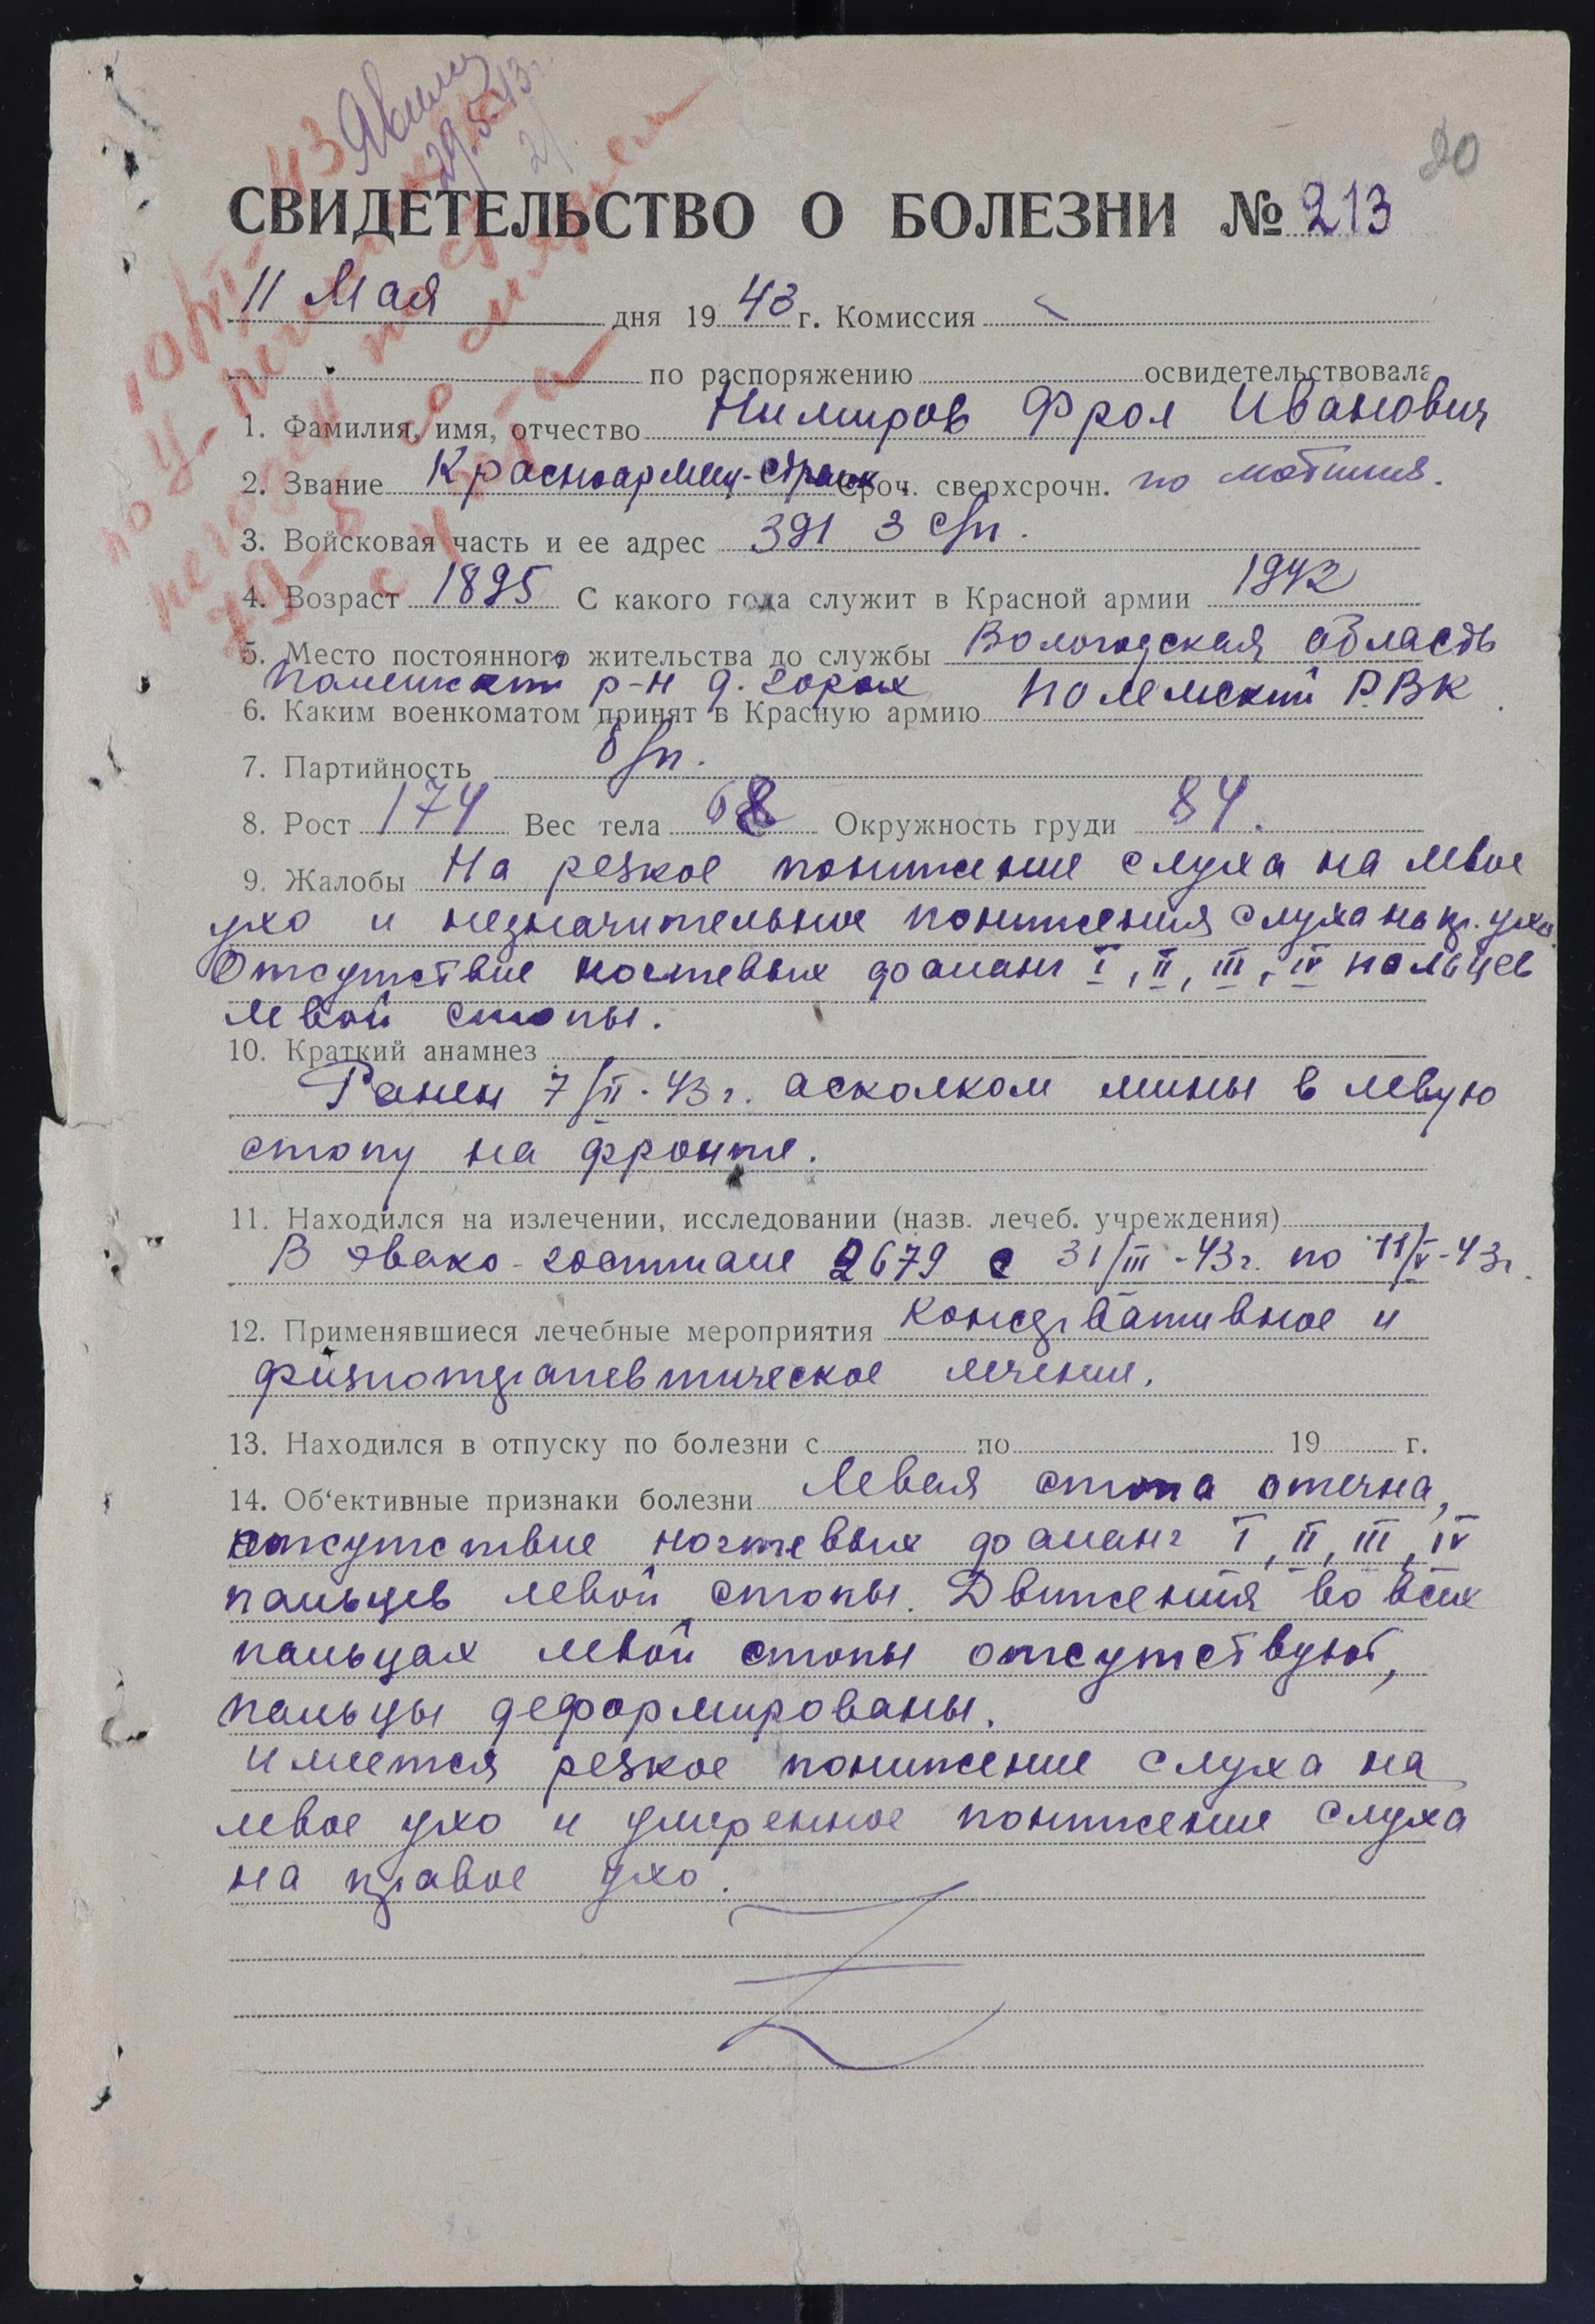 Явился
29.5.43 г.
20
СВИДЕТЕЛЬСТВО О БОЛЕЗНИ № 213
11 Мая дня 1943 г. Комиссия
по распоряжению освидетельствовала
1. Фамилия, имя, отчество Нимиров Фрол Иванович
2. Звание Красноармеец-стрелок Сроч. сверхсрочн. по мобилиз.
3. Войсковая часть и ее адрес 391 3 с/п.
4. Возраст 1895 С какого года служит в Красной армии 1942
5. Место постоянного жительства до службы Вологодская область
р-н д.
6. Каким военкоматом принят в Красную армию Р.В.К
7. Партийность б/п.
8. Рост 174 Вес тела 68 Окружность груди 84.
9. Жалобы На резкое понижение слуха на левое
ухо и незначительное понижения слуха на пр. ухо.
Отсутствие ногтевых фаланг I, II, III, IV пальцев
левой стопы.
10. Краткий анамнез
Ранен 7/II-43 г. асколком мины в левую
стопу на фронте.
11. Находился на излечении, исследовании (назв. лечеб. учреждения)
В эвако-госпитале 2679 с 31/III-43г. по 11/V-43г.
12. Применявшиеся лечебные мероприятия Консервативное и
физиотерапевтическое лечение.
13. Находился в отпуску по болезни с по 19 г.
14. Об'ективные признаки болезни Левая стопа отечна,
отсутствие ногтевых фаланг I, II, III, IV
пальцев левой стопы. Движения во всех
пальцах левой стопы отсутствуют,
пальцы деформированы.
имеется резкое понижение слуха на
левое ухо и умеренное понижение слуха
на правое ухо.